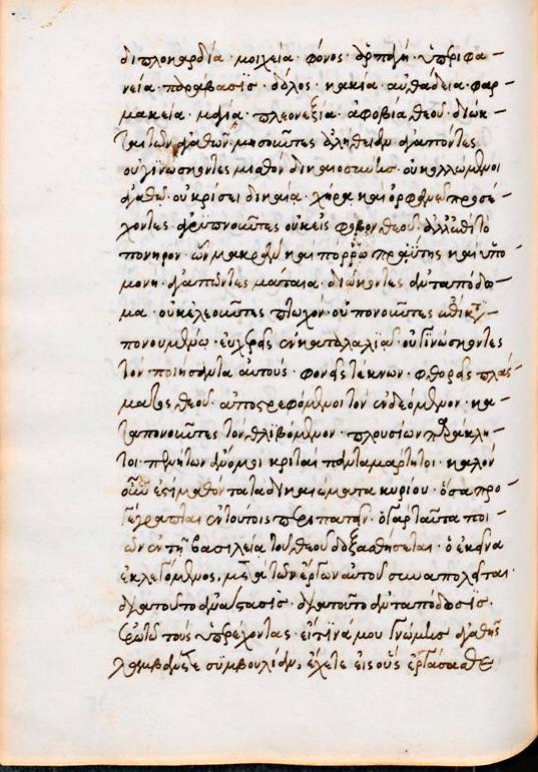 διπλοκαρδία· μοιχεία· φόνος· ἁρπαγή· ὑπεριφα-
νεία· παράβασϊς· δόλος· κακία· αὐθάδεια· φαρ-
μακεία· μαγία· πλεονεξία· ἀφοβία θεοῦ· διώκ-
ται τῶν ἀγαθῶν· μισοῦντες ἀλήθειαν· ἀγαπόντες
οὐ γινώσκοντες μισθὸν δικαιοσύνης· οὐ κολλώμενοι
ἀγαθῷ· οὐ κρίσει δικαία· χήρα καὶ ὀρφανῶ προσέ-
χοντες· ἀγρυπνοῦντες οὐκ εἰς φόβον θεοῦ· ἀλλ' ἐπὶ τὸ
πονηρον· ὧν μακρὰν καὶ πόρρω πραΰτης καὶ ὑπο-
μονη· ἀγαπῶντες μάταια· διώκοντες ἀνταπόδο-
μα· οὐκ ἐλεοῦντες πτωχόν· οὐ πονοῦντες ἐπὶ κατα-
πονουμένω· εὐχερεῖς ἐν καταλαλϊᾶ· οὐ γϊνώσκοντες
τὸν ποιήσαντα αὐτούς· φονεῖς τέκνων· φθορεῖς πλάσ-
ματος θεοῦ· ἀποστρεφόμενοι τὸν ἐνδεόμενον· κα-
ταπονοῦντες τὸν θλιβόμενον· πλουσίων παράκλη-
τοι· πενήτων ἄνομοι κριταί· πανταμάρτητοι· καλὸν
οὖν ἐστὶ μαθόντα τὰ δικαιώματα κυρίου· ὅσα προ-
γέγραπται ἐν τούτοις περιπατεῖν· ὁ γὰρ ταῦτα ποι-
ῶν ἐν τῆ βασιλεία τοῦ θεοῦ δοξασθήσεται· ὁ ἐκεῖνα
ἐκλεγόμενος, μετὰ τῶν ἔργων αὐτοῦ συναπολεῖται·
διὰ τοῦτο ἀνάστασϊς· διὰ τοῦτο ἀνταπόδοσϊς·
ἐρωτῶ τοὺς ὑπερέχοντας· εἴ τϊνά μου γνώμης ἀγαθῆς
λαμβάνετε συμβουλίαν, ἔχετε εἰς οὓς ἐργάσασθε